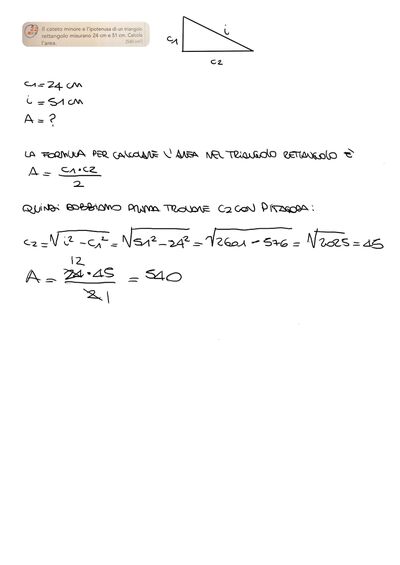 Il cateto minore e l'ipotenusa di un triangolo
rettangolo misurano 24 cm e 51 cm. Calcola
l'area. [540 cm²]
c1
i
c2
c1 = 24 cm
i = 51 cm
A = ?
LA FORMULA PER CALCOLARE L'AREA NEL TRIANGOLO RETTANGOLO È
A = c1·c2 / 2
QUINDI DOBBIAMO PRIMA TROVARE C2 CON PITAGORA:
c2 = √i² - c1² = √51² - 24² = √2601 - 576 = √2025 = 45
12
A = 24·45 / 2 1 = 540